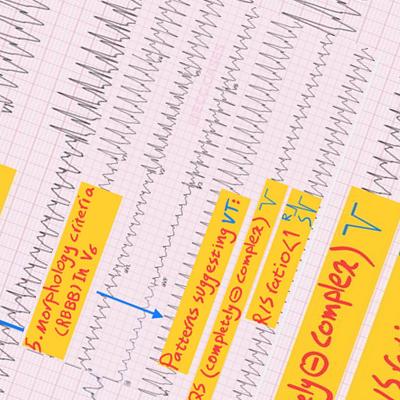 5. Morphology criteria
(RBBB) In V6
Patterns suggesting VT:
QS (completely ⊖ complex)
R/S ratio<1 R/S
ely ⊖ complex)